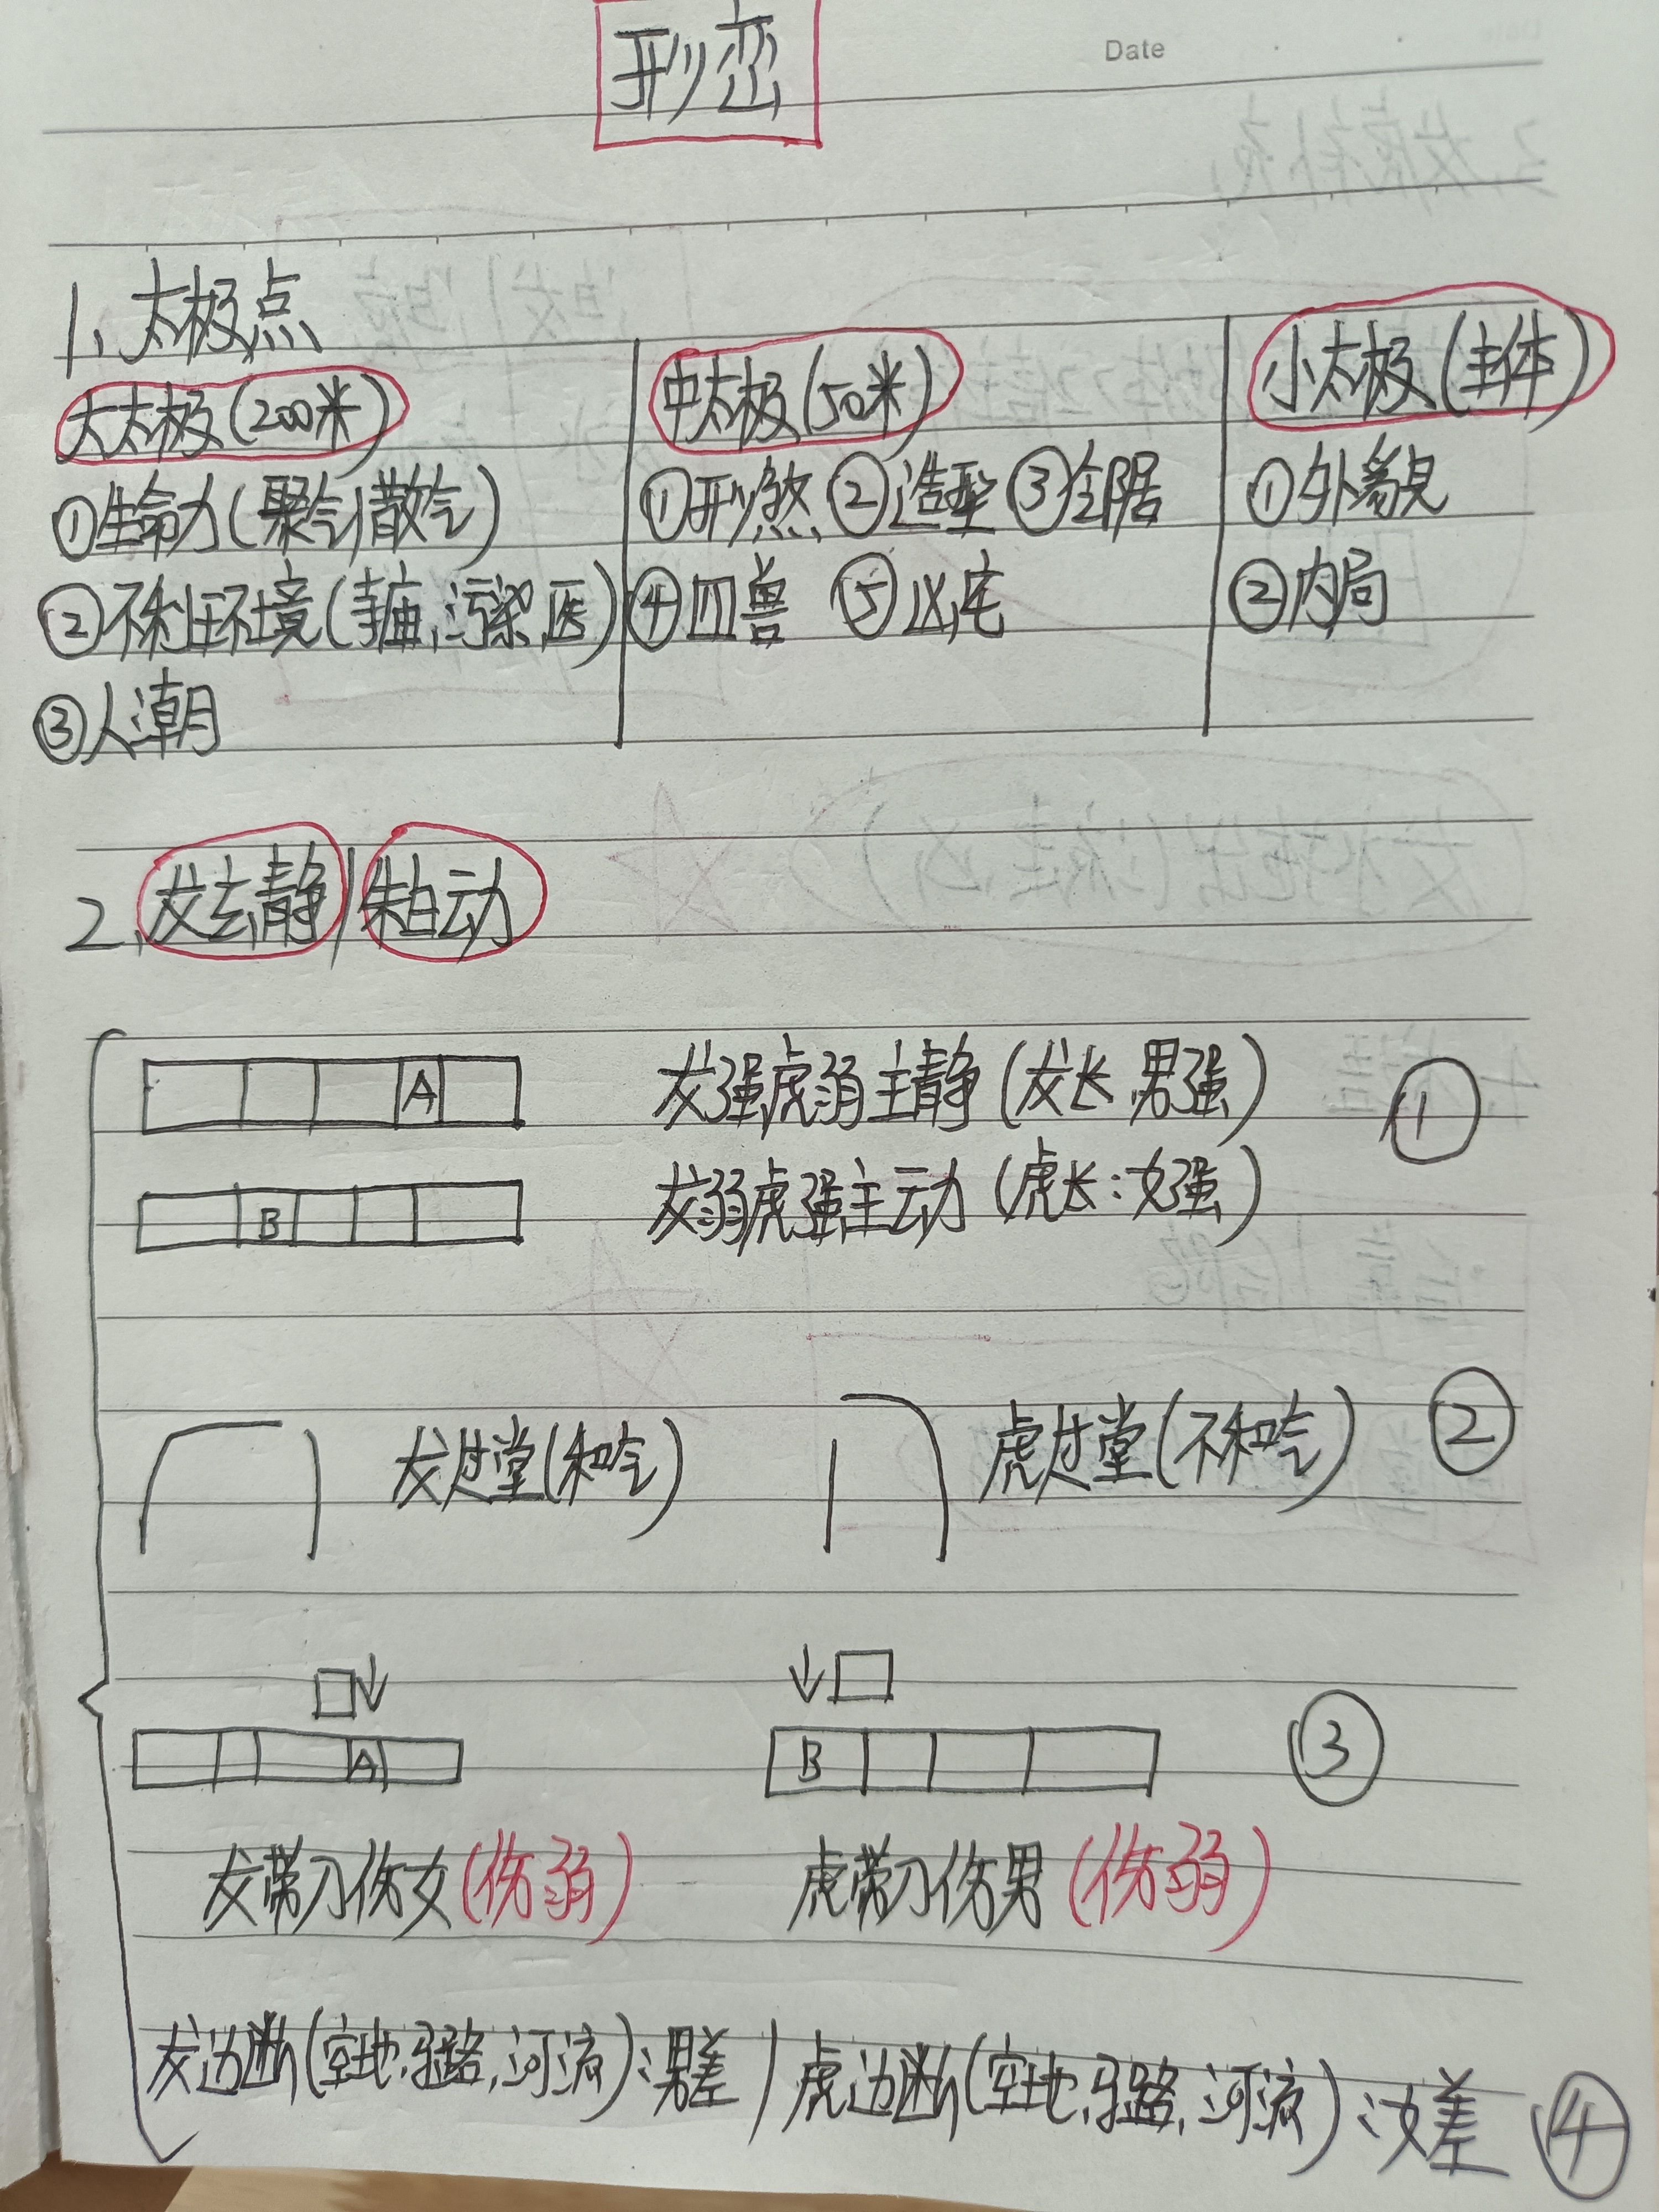 形峦
Date
1、太极点
大太极(200米)
①生命力(聚气/散气)
②不利住环境(寺庙,污染,医)
③人潮
中太极(50米)
①形煞 ②造型 ③邻居
④四兽 ⑤凶宅
小太极(主体)
①外貌
②内局
2、龙玄静/朱白动
A
龙强虎弱主静(龙长,男强)
①
B
龙弱虎强主动(虎长:女强)
龙过堂(和气)
虎过堂(不和气)
②
A
B
③
龙带刀伤女(伤弱)
虎带刀伤男(伤弱)
龙边断(空地,马路,河流):男差/虎边断(空地,马路,河流):女差 ④